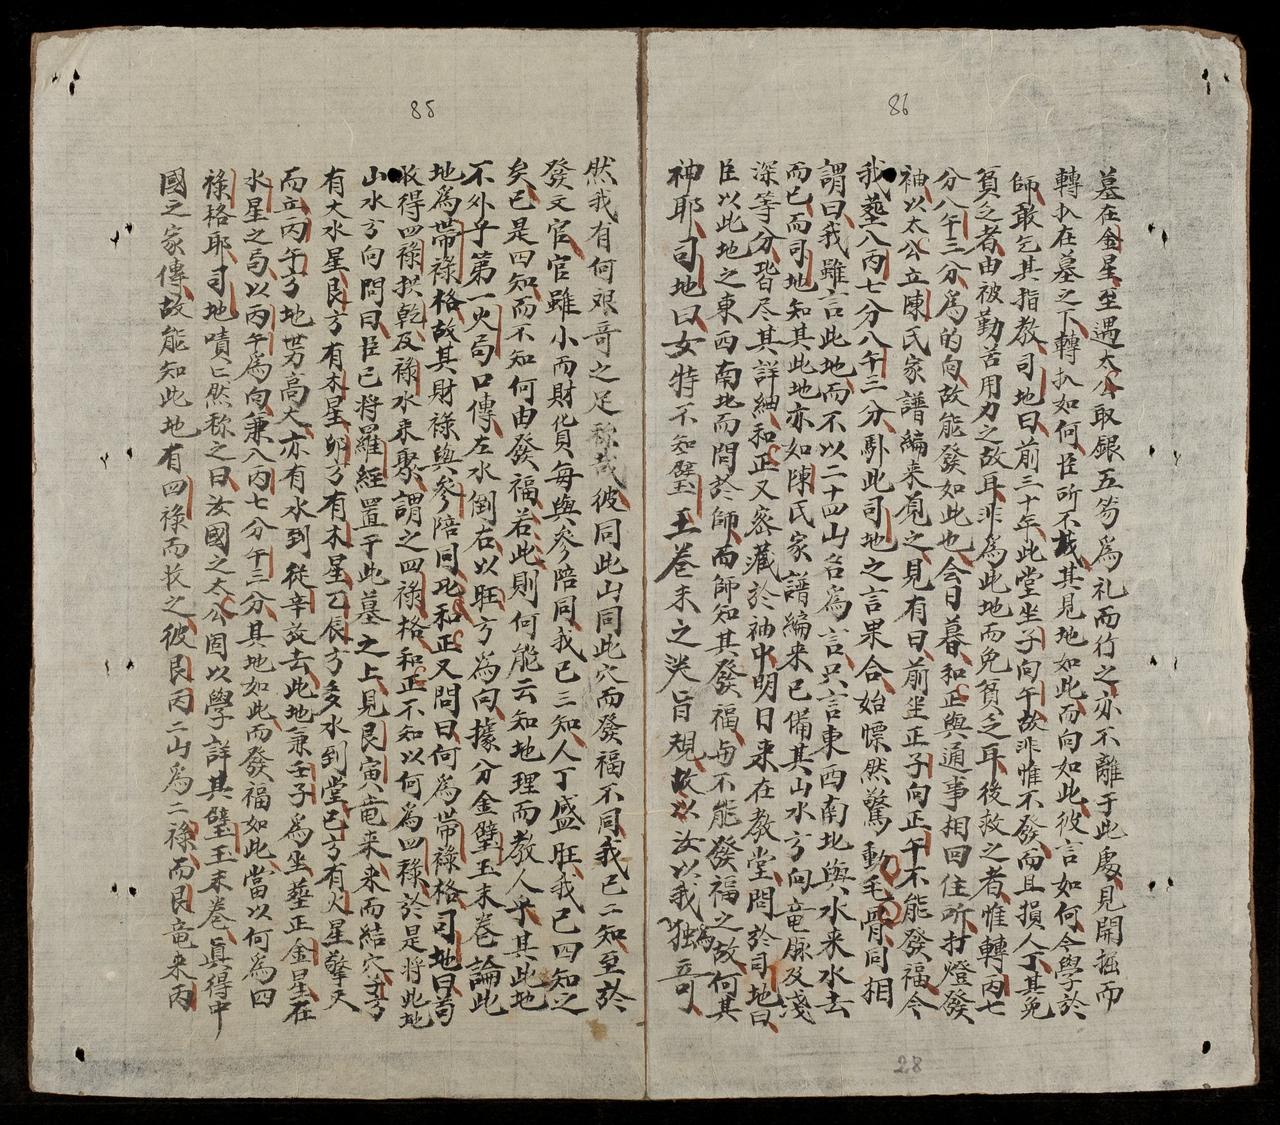 86
墓在金星至遇太公取銀五笏為礼而行之亦不離于此處見開掘而
轉扒在墓之下轉扒如何臣所不哉其見地如此而向如此彼言如何今學於
師敢乞其指教司地曰前三十年此堂坐子向午故非惟不發而且損人丁其免
貧乏者由被勤苦用力之故耳非為此地而免貧乏耳後救之者惟轉丙七
分八午三分為的向故能發如此也会日暮和正與通事相回住所打燈發
袖以太公立陳氏家譜編来覓之見有曰前坐正子向正午不能發福今
我塟八丙七分八午三分馱此司地之言果合始慓然驚動毛骨同相
謂曰我雖言此地而不以二十四山名為言只言東西南北與水来水去
而已而司地知其此地亦如陳氏家譜編来已備其山水方向竜脉及淺
深等分皆尽其詳紬和正又密藏於袖中明日来在教堂問於司地曰
臣以此地之東西南北而問於師而師知其發福与不能發福之故何其
神耶司地曰女特不知璧玉卷末之决旨規故以汝以我為独奇
85
然我有何艰哥之足称哉彼同此山同此穴而發福不同我已二知至於
發文官官雖小而財貨每與参陪同我已三知人丁盛旺我已四知之
矣已是四知而不知何由發福若此則何能云知地理而教人乎其此地
不外乎第一火局口傳左水倒右以旺方為向據分金璧玉末卷論此
地為帶祿格故其財祿與参陪同此和正又問曰何為帶祿格司地曰苟
收得四祿拱乾及祿水来聚謂之四祿格和正不知以何為四祿於是將此地
山水方向問曰臣已將羅經置于此墓之上見艮寅竜来来而結穴于兮
有大水星艮方有木星卯方有木星乙辰方多水到堂巳方有火星擎天
而立丙午方地势高大亦有水到從辛故去此地兼壬子為坐塟正金星在
水星之局以丙午為向兼八丙七分午三分其地如此而發福如此當以何為四
祿格耶司地嘖亡然称之曰汝國之太公固以學詳其璧玉末卷真得中
國之家傳故能知此地有四祿而扶之彼艮丙二山為二祿而艮竜来丙
28